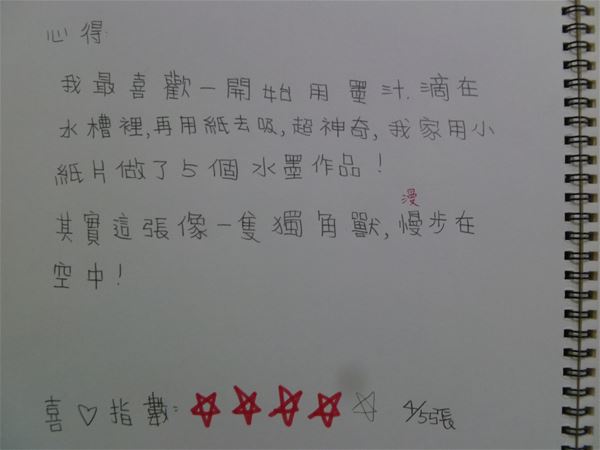 心得
我最喜歡一開始用墨汁.滴在
水槽裡,再用紙去吸,超神奇,我家用小
紙片做了5個水墨作品!
漫
其實這張像一隻獨角獸,慢步在
空中!
喜♡指數:★★★★☆ 4/55張